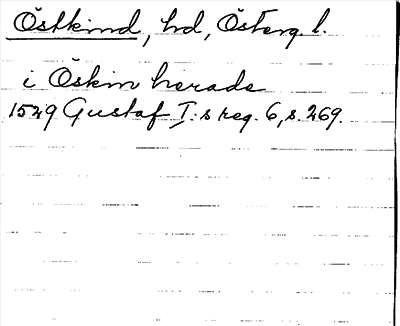 Östkind, hd, Österg. l.
i Öskin herade
1529 Gustaf I:s reg. 6, s. 269.